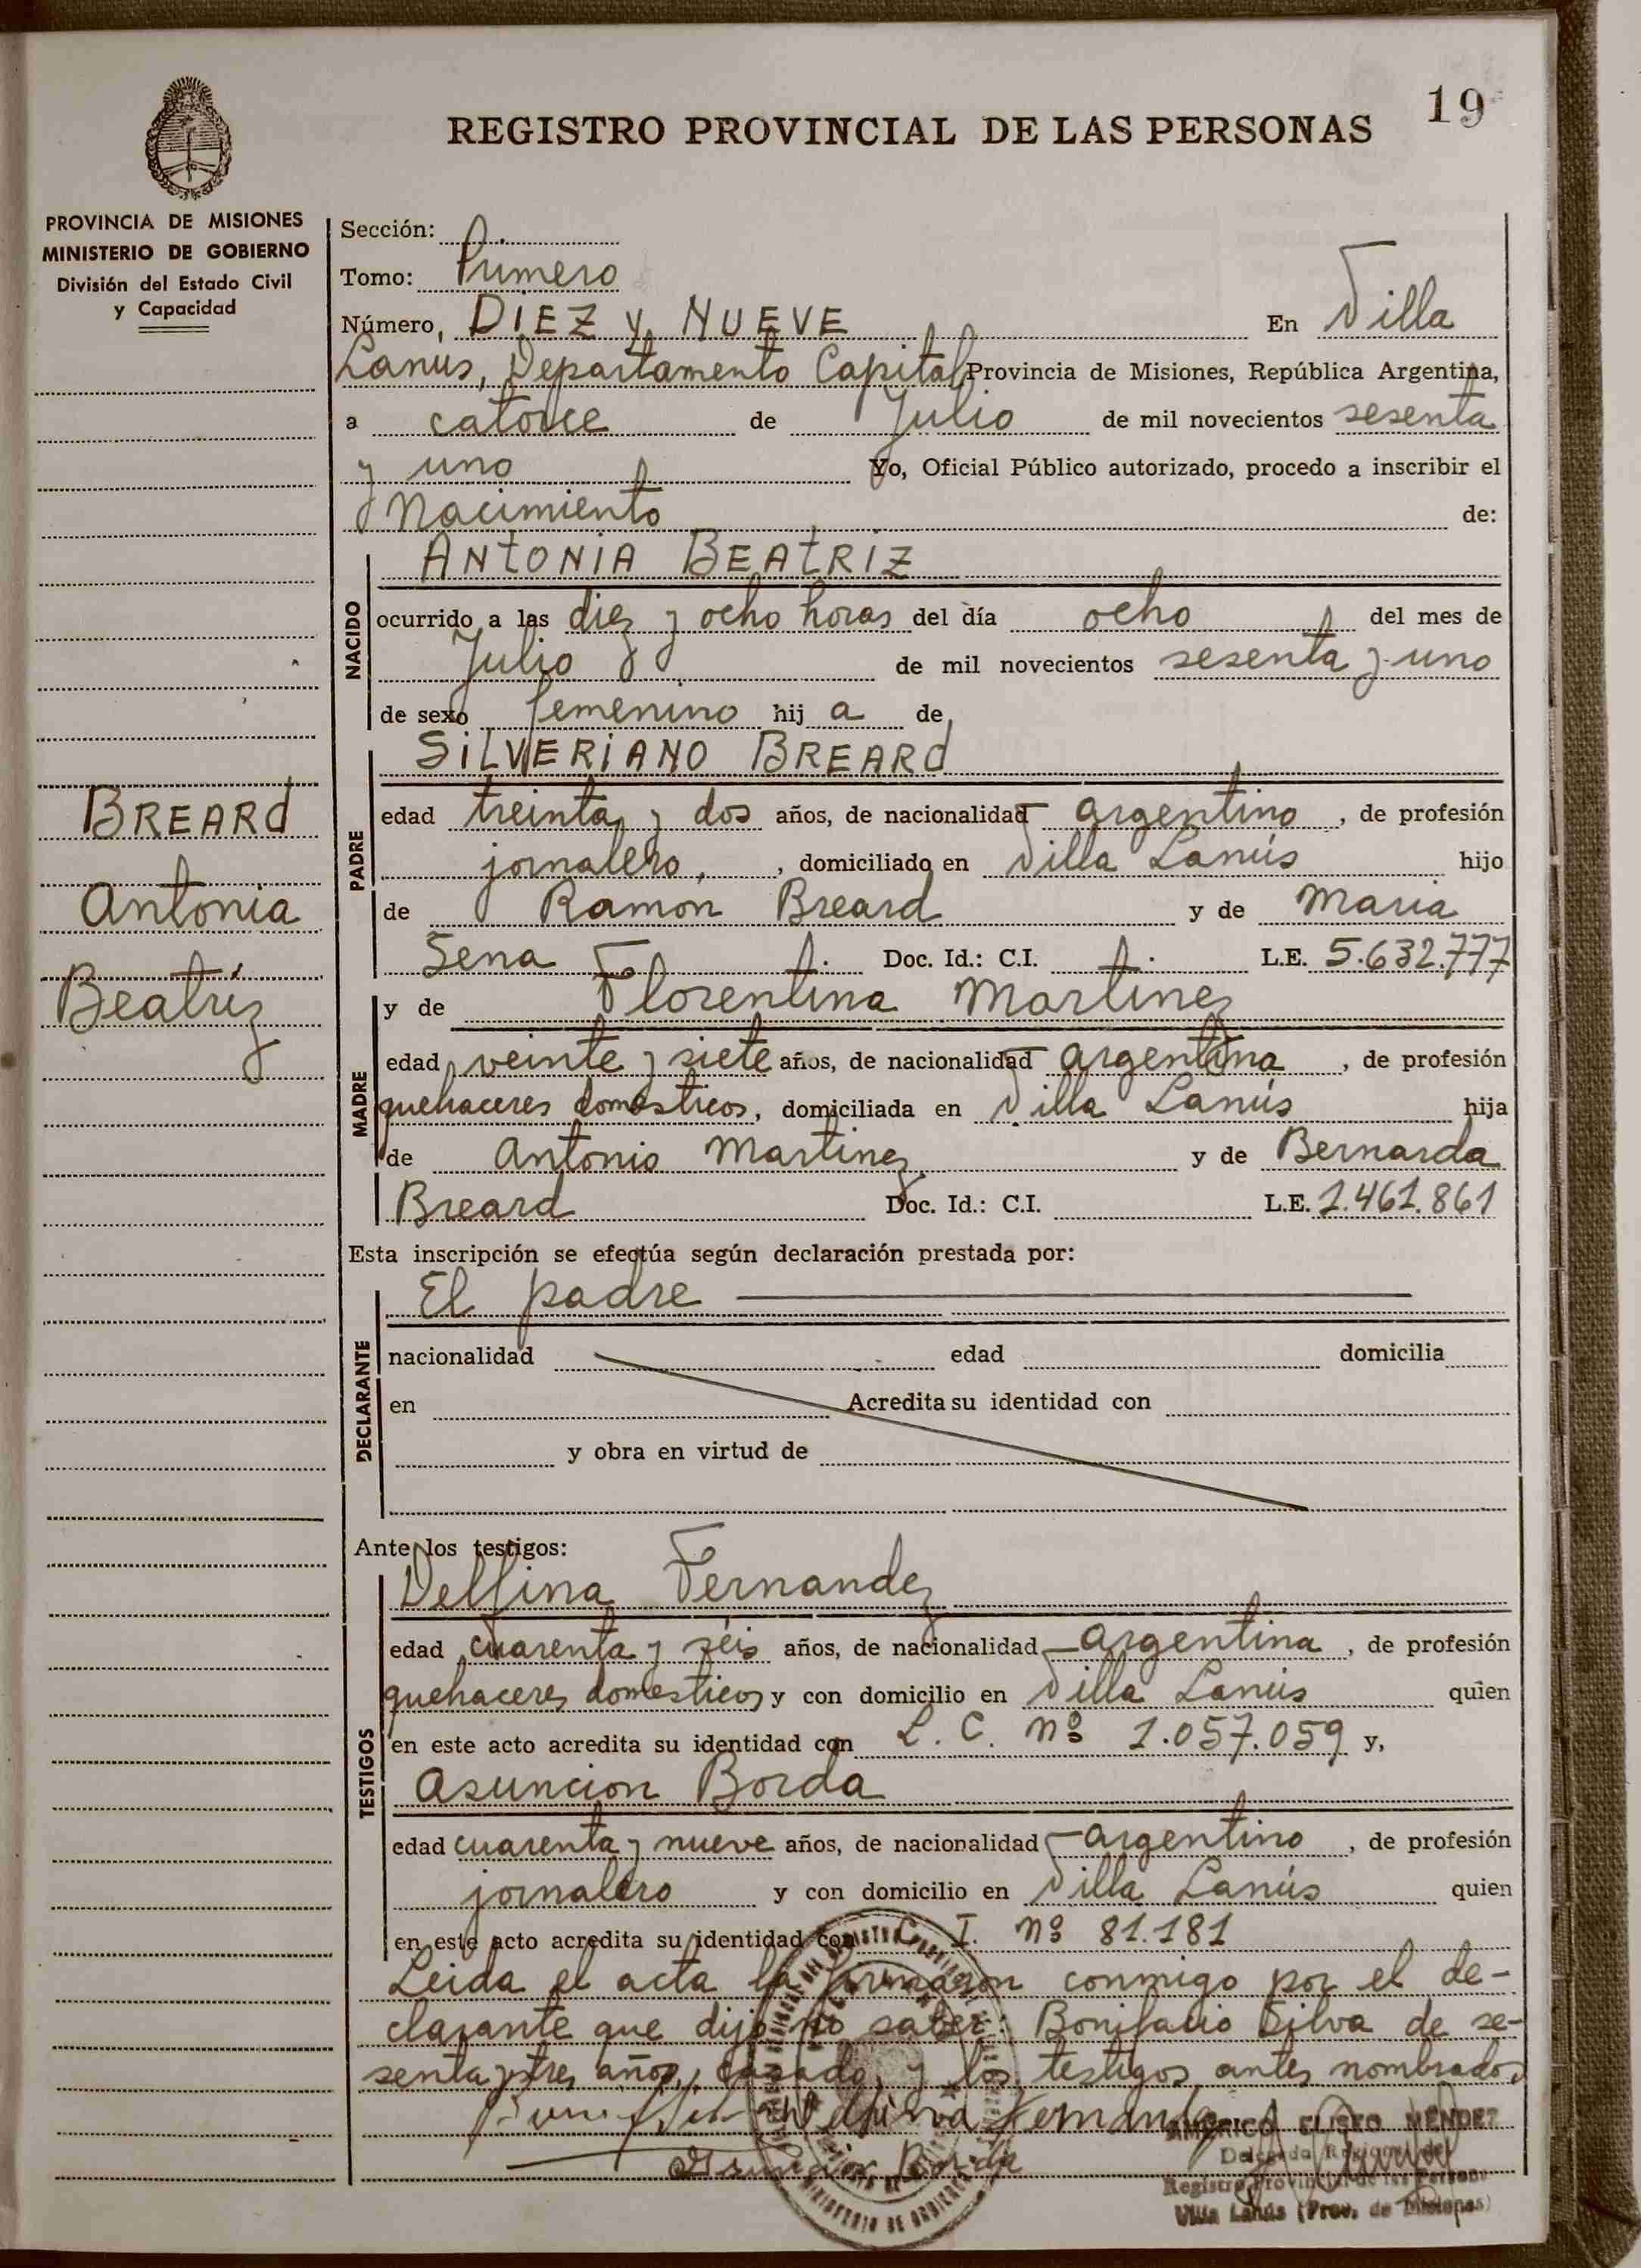 19
REGISTRO PROVINCIAL DE LAS PERSONAS
PROVINCIA DE MISIONES
MINISTERIO DE GOBIERNO
División del Estado Civil
y Capacidad
BREARD
Antonia
Beatríz
Sección:
Tomo: Primero
Número, DIEZ y NUEVE En Villa
Lanus, Departamento Capital Provincia de Misiones, República Argentina,
a catorce de Julio de mil novecientos sesenta
y uno Yo, Oficial Público autorizado, procedo a inscribir el
Nacimiento de:
NACIDO
ANTONIA BEATRIZ
ocurrido a las diez y ocho horas del día ocho del mes de
Julio de mil novecientos sesenta y uno
de sexo femenino hij a de
PADRE
SILVERIANO BREARD
edad treinta y dos años, de nacionalidad argentino, de profesión
jornalero, , domiciliado en Villa Lanús hijo
de Ramon Breard y de Maria
Sena Doc. Id.: C.I. L.E. 5.632.777
MADRE
y de Florentina Martinez
edad veinte y siete años, de nacionalidad argentina, de profesión
quehaceres domésticos, domiciliada en Villa Lanús hija
de Antonio Martinez y de Bernarda
Breard Doc. Id.: C.I. L.E. 1.461.861
Esta inscripción se efectúa según declaración prestada por:
DECLARANTE
El padre
nacionalidad edad domicilia
en Acredita su identidad con
y obra en virtud de
Ante los testigos:
TESTIGOS
Delfina Fernandez
edad cuarenta y séis años, de nacionalidad argentina, de profesión
quehaceres domesticos y con domicilio en Villa Lanús quien
en este acto acredita su identidad con L. C. nº 1.057.059 y,
Asuncion Borda
edad cuarenta y nueve años, de nacionalidad argentino, de profesión
jornalero y con domicilio en Villa Lanús quien
en este acto acredita su identidad con C. I. nº 81.181
Leida el acta la firmaron conmigo por el de-
clarante que dijo no saber: Bonifacio Silva de se-
senta y tres años, casado, y los testigos antes nombrados
Delfina Fernandez
Asuncion Borda
AMÉRICO ELISEO MÉNDEZ
Registro Provincial de las Personas
Villa Lanús (Prov. de Misiones)